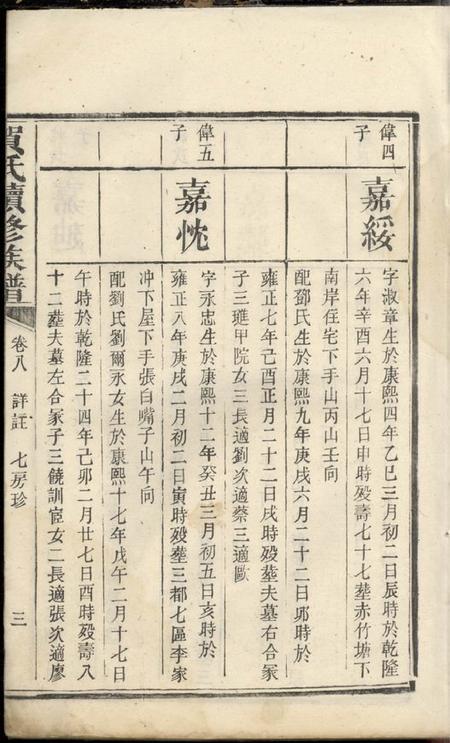 偉四子
嘉綏
字淑章生於康熙四年乙巳三月初二日辰時於乾隆
六年辛酉六月十七日申時歿壽七十七塟赤竹塘下
南岸住宅下手山丙山壬向
配鄧氏生於康熙九年庚戌六月二十二日夘時於
雍正七年己酉正月二十二日戌時歿塟夫墓右合冢
子三璡甲院女三長適劉次適蔡三適歐
偉五子
嘉忱
字永忠生於康熙十二年癸丑三月初五日亥時於
雍正八年庚戌二月初二日寅時歿塟三都七區李家
冲下屋下手張白嘴子山午向
配劉氏劉爾永女生於康熙十七年戊午二月十七日
午時於乾隆二十四年己卯二月廿七日酉時歿壽八
十二塟夫墓左合冢子三饒訓宦女二長適張次適廖
賀氏續修族譜
卷八 詳註 七房珍 三